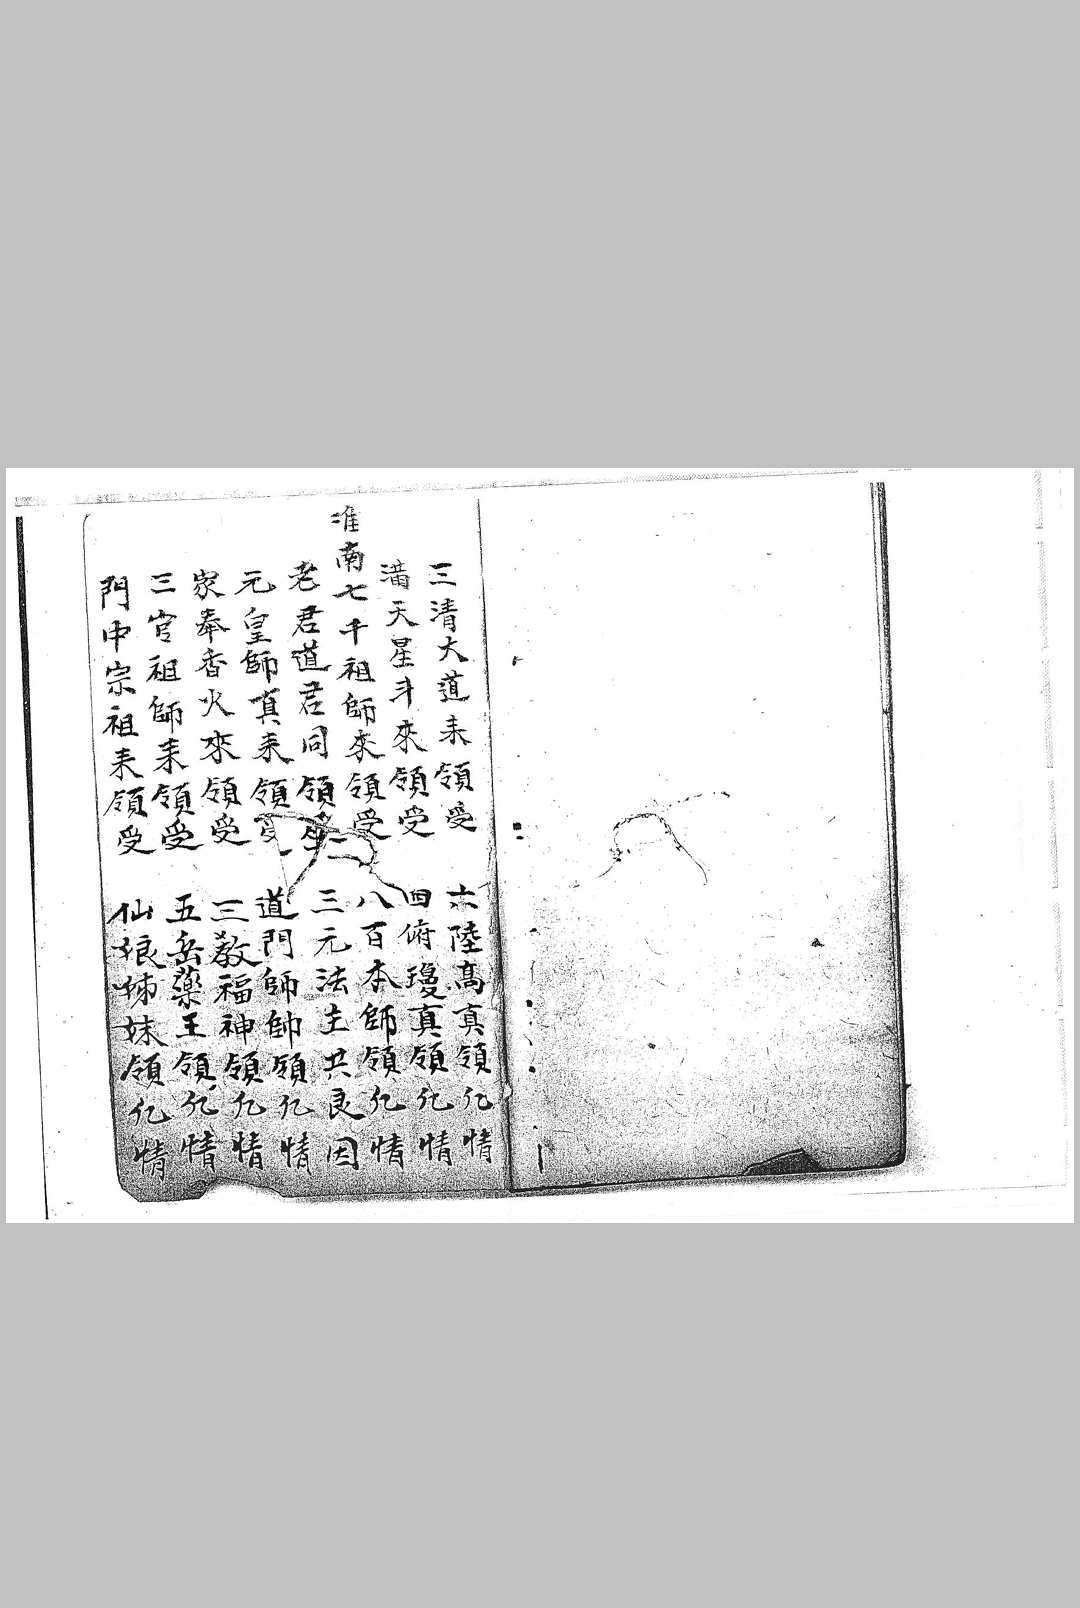 三清大道来領受　六陸高真領化情
滿天星斗來領受　四府瓊真領化情
淮南七千祖師來領受　八百本師領化情
老君道君同領受　三元法主共良因
元皇師真来領受　道門師帥領化情
家奉香火來領受　三教福神領化情
三官祖師来領受　五岳藥王領化情
門中宗祖来領受　仙娘姊妹領化情